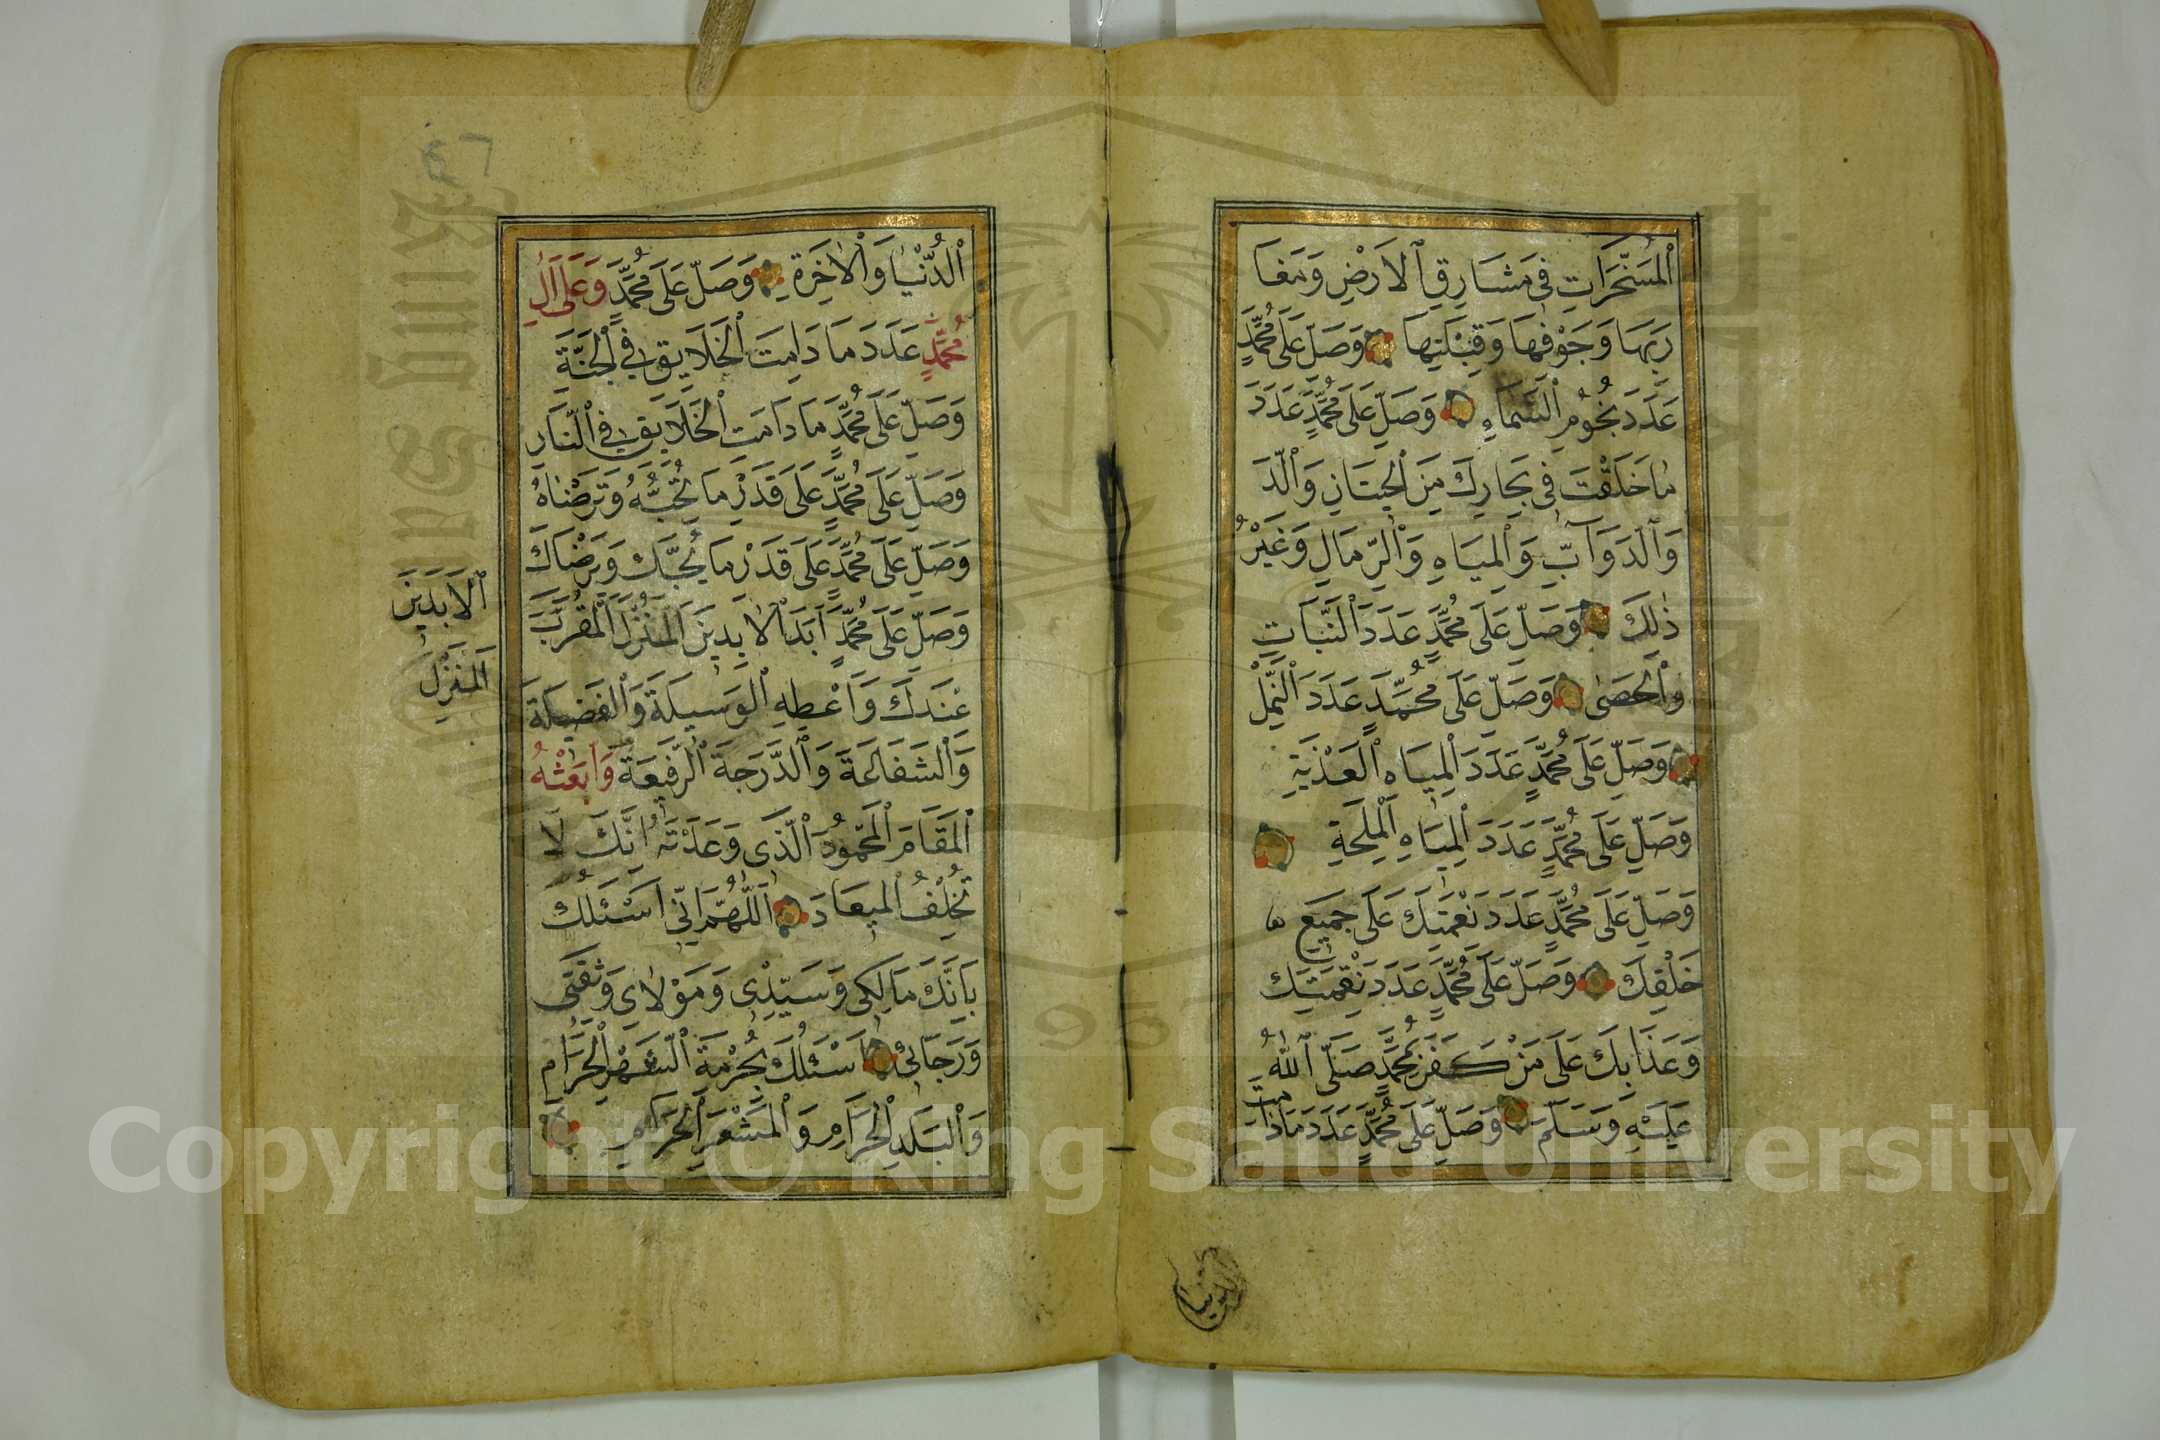 اَلْمُسَخَّرَاتِ فِى مَشَارِقِ ٱلْاَرْضِ وَمَغَا
رِبَهَا وَجَوْفِهَا وَقِبْلَتِهَا وَصَلِّ عَلَى مُحَمَّدٍ
عَدَدَ نُجُومِ ٱلسَّمَاءِ وَصَلِّ عَلَى مُحَمَّدٍ عَدَدَ
مَا خَلَقْتَ فِى بِحَارِكَ مِنَ ٱلْحِيتَانِ وَٱلدَّ
وَٱلدَوَآبِّ وَٱلْمِيَاهِ وَٱلرِّمَالِ وَغَيْرُ
ذٰلِكَ وَصَلِّ عَلَى مُحَمَّدٍ عَدَدَ ٱلنَّبَاتِ
وَٱلْحَصٰى وَصَلِّ عَلَى مُحَمَّدٍ عَدَدَ ٱلنَّمْلِ
وَصَلِّ عَلَى مُحَمَّدٍ عَدَدَ ٱلْمِيَاهِ ٱلْعَذْبَةِ
وَصَلِّ عَلَى مُحَمَّدٍ عَدَدَ ٱلْمِيَاهِ ٱلْمِلْحَةِ
وَصَلِّ عَلَى مُحَمَّدٍ عَدَدَ نِعْمَتِكَ عَلَى جَمِيعِ
خَلْقِكَ وَصَلِّ عَلَى مُحَمَّدٍ عَدَدَ نِقْمَتِكَ
وَعَذَابِكَ عَلَى مَنْ كَفَرَ بِمُحَمَّدٍ صَلَّى ٱللهُ
عَلَيْهِ وَسَلَّمَ وَصَلِّ عَلَى مُحَمَّدٍ عَدَدَ مَا دَامَتِ
الدنيا
67
ٱلدُّنْيَا وَٱلْاٰخِرَةِ وَصَلِّ عَلَى مُحَمَّدٍ وَعَلَى اٰلِ
مُحَمَّدٍ عَدَدَ مَا دَامَتِ ٱلْخَلَايِقِ فِى ٱلْجَنَّةِ
وَصَلِّ عَلَى مُحَمَّدٍ مَا دَامَتِ ٱلْخَلَايِقِ فِى ٱلنَّارِ
وَصَلِّ عَلَى مُحَمَّدٍ عَلَى قَدْرِ مَا تُحِبُّهُ وَتَرْضَاهُ
وَصَلِّ عَلَى مُحَمَّدٍ عَلَى قَدْرِ مَا يُحِبُّكَ وَيَرْضَاكَ
وَصَلِّ عَلَى مُحَمَّدٍ اَبَدَ ٱلْاٰبِدِينَ اَلْمُنْزَلَ ٱلْمُقَرَّبَ
ٱلْاَبَدِينَ
اَلْمَنْزِلَ
عِنْدَكَ وَاَعْطِهِ ٱلْوَسِيلَةَ وَٱلْفَضِيلَةَ
وَٱلشَفَاعَةَ وَٱلدَّرَجَةَ ٱلرَّفِيعَةَ وَابْعَثْهُ
ٱلْمَقَامَ ٱلْمَحْمُودَ ٱلَّذِى وَعَدْتَهُ اِنَّكَ لَا
تُخْلِفُ ٱلْمِيعَادَ اَللّٰهُمَّ اِنِّى اَسْئَلُكَ
بِاَنَّكَ مَالِكِى وَسَيِّدِى وَمَوْلَاىَ وَثِقَتِى
وَرَجَائِى اَسْئَلُكَ بِحُرْمَةِ ٱلشَّهْرِ ٱلْحَرَامِ
وَٱلْبَلَدِ ٱلْحَرَامِ وَٱلْمَشْعَرِ ٱلْحَرَامِ
Copyright © King Saud University
King Saud University
1957